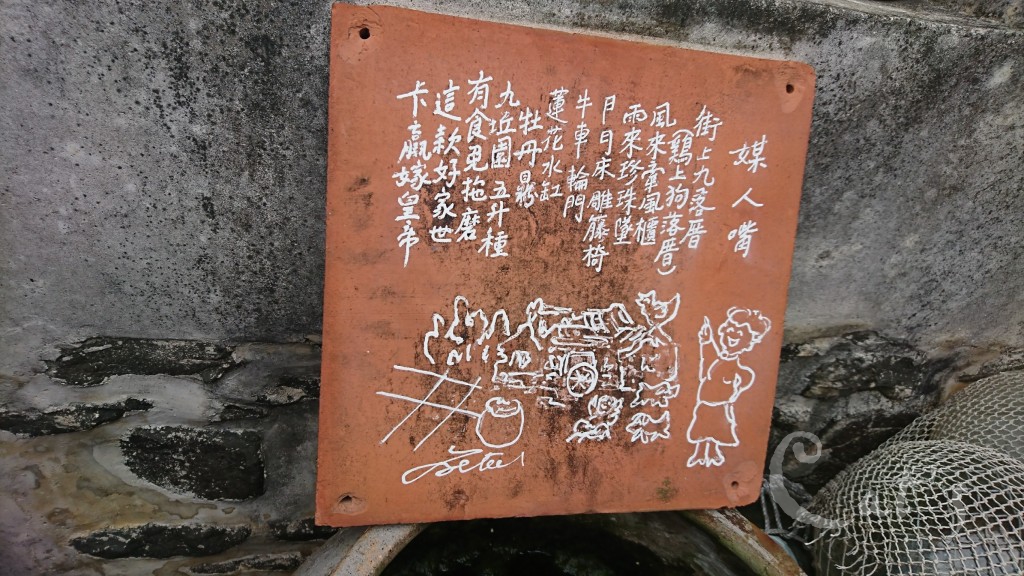 媒人嘴
街上九落厝
(鷄上狗落厝)
風來牽風櫃
雨來珍珠墜
月眉床雕籐椅
牛車輪門
蓮花水缸
牡丹鼎
九坵園五斗種
有食免拖磨
這款好家世
卡贏嫁皇帝
Peter